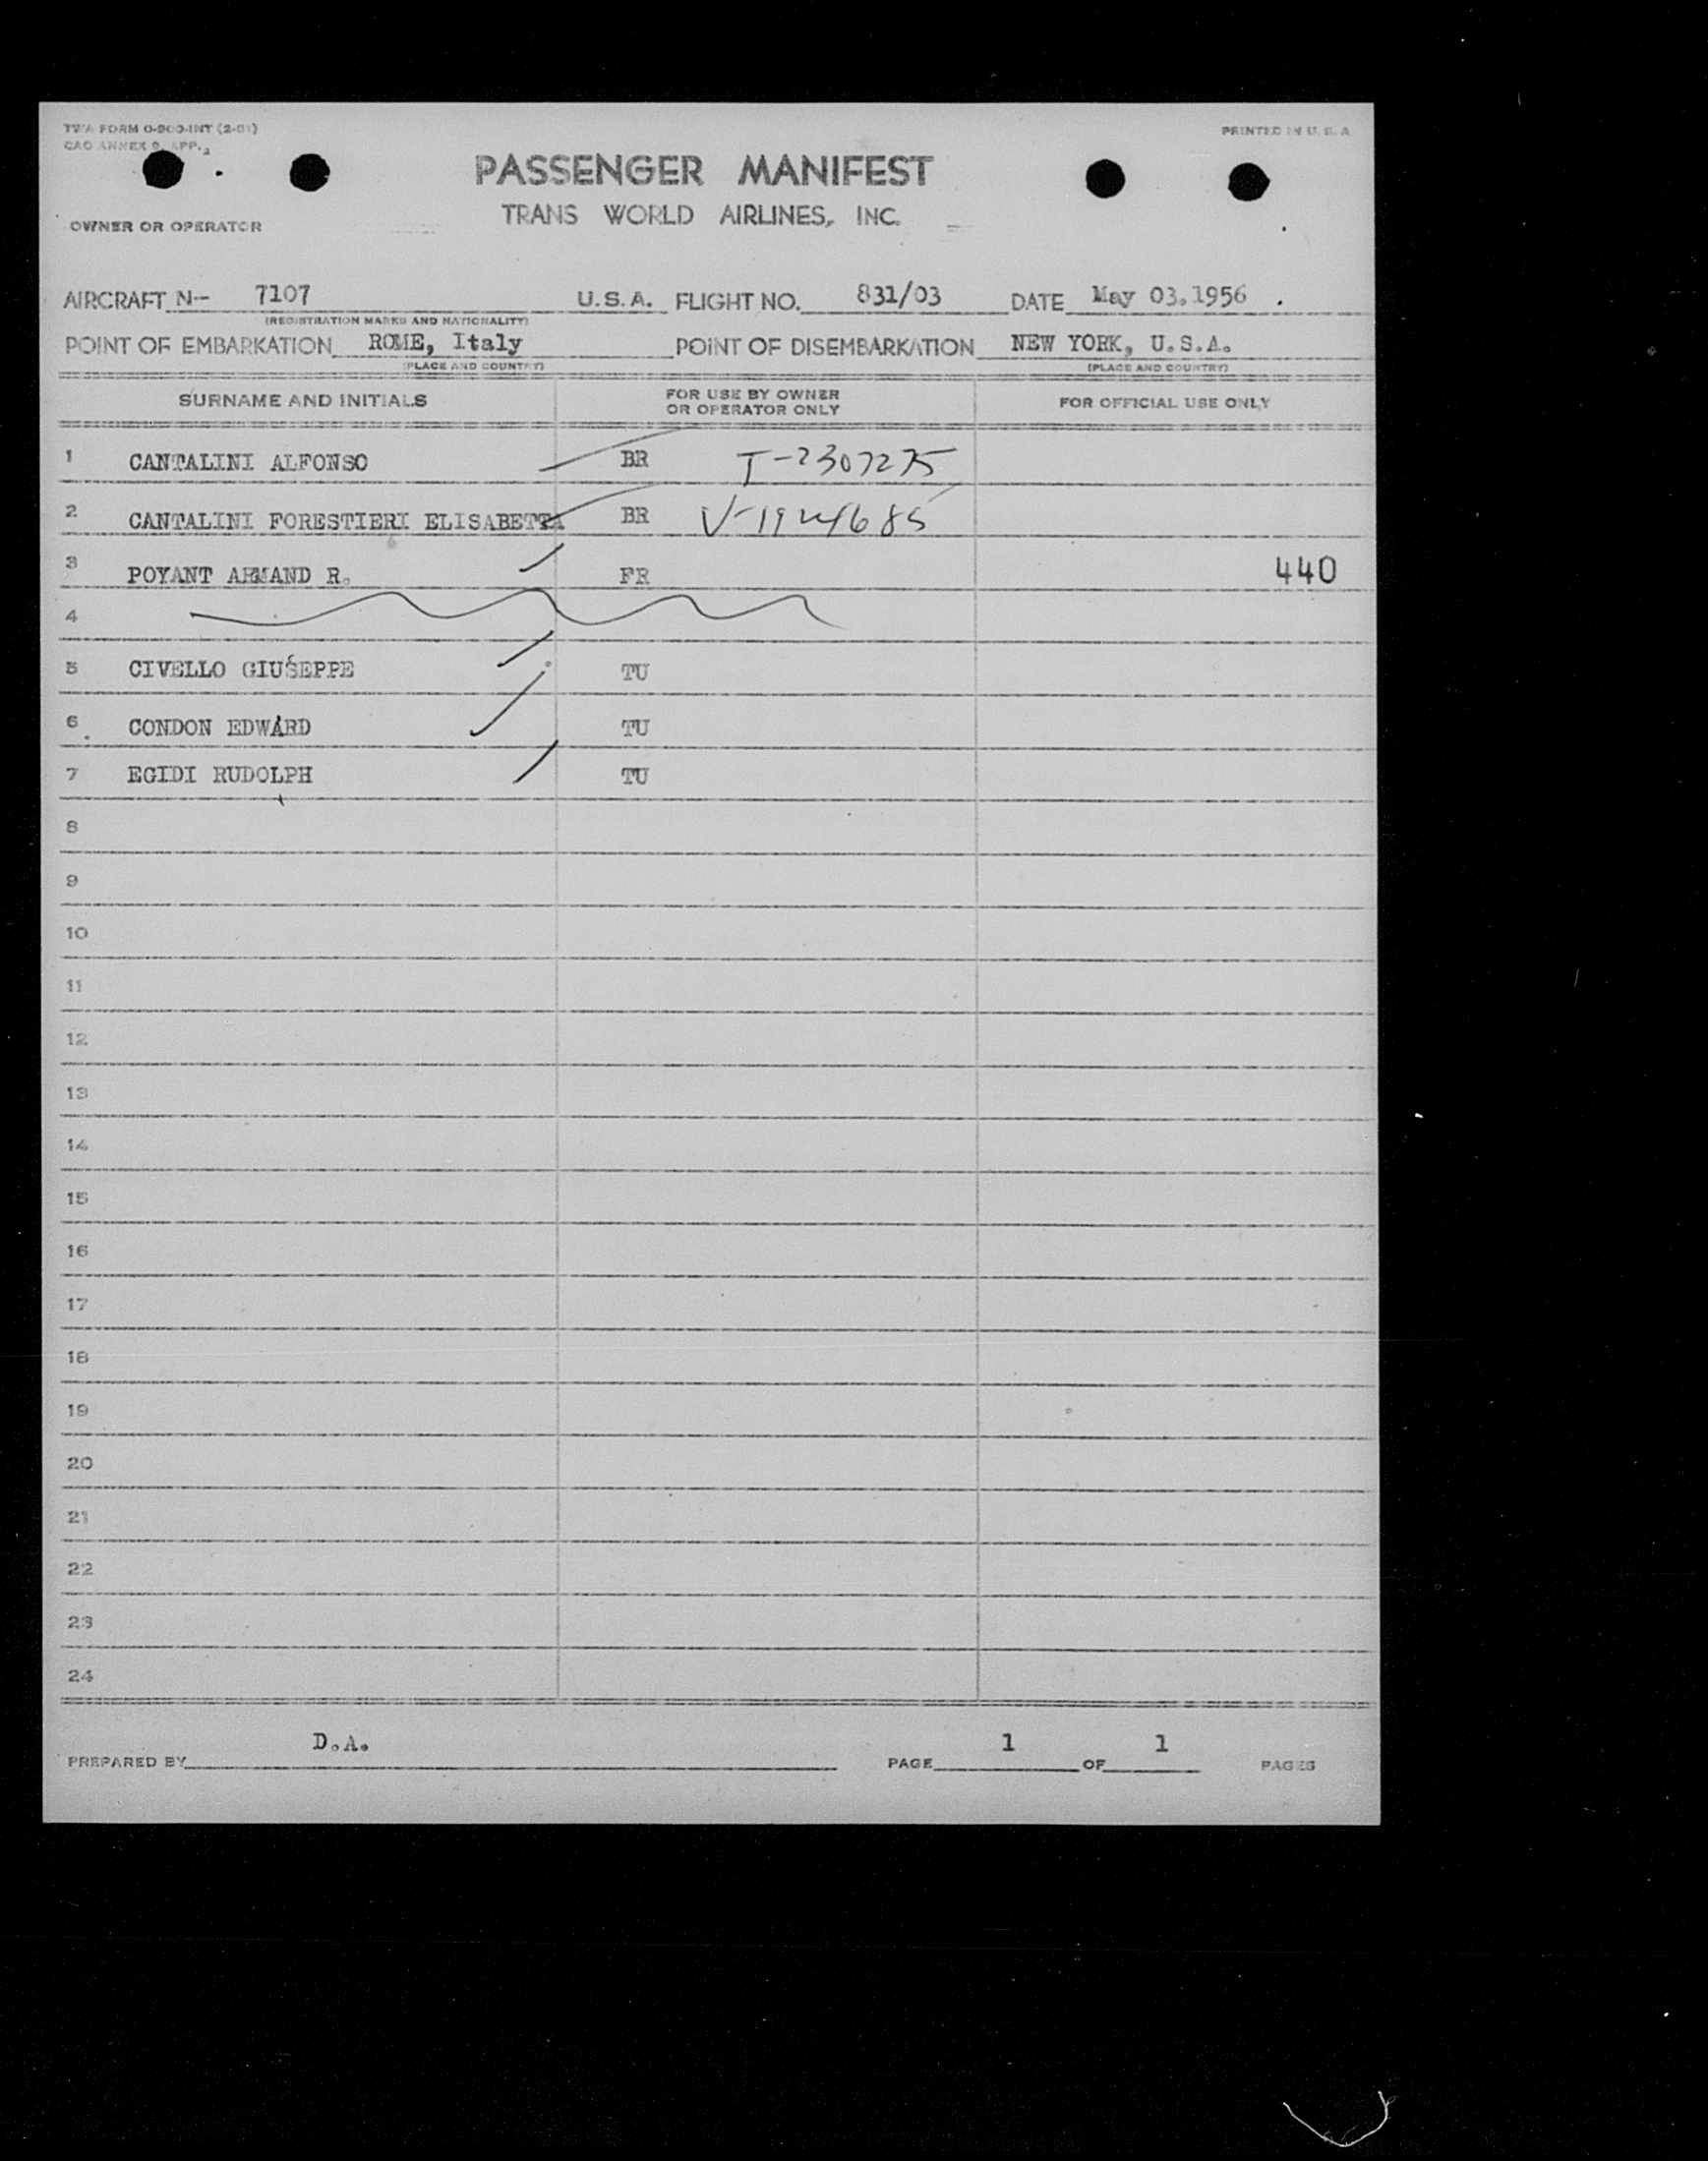 TWA FORM O-900-INT (2-51)
PRINTED IN U. S. A.
CAO ANNEX 9, APP.
PASSENGER MANIFEST
TRANS WORLD AIRLINES, INC.
OWNER OR OPERATOR
AIRCRAFT N-- 7107 U.S.A. FLIGHT NO. 831/03 DATE May 03.1956
(REGISTRATION MARKS AND NATIONALITY)
POINT OF EMBARKATION ROME, Italy POINT OF DISEMBARKATION NEW YORK, U.S.A.
(PLACE AND COUNTRY) (PLACE AND COUNTRY)
SURNAME AND INITIALS FOR USE BY OWNER OR OPERATOR ONLY FOR OFFICIAL USE ONLY
1 CANTALINI ALFONSO BR T-2307275
2 CANTALINI FORESTIERI ELISABETTA BR V-1924685
3 POYANT ARMAND R. FR 440
4
5 CIVELLO GIUSEPPE TU
6 CONDON EDWARD TU
7 EGIDI RUDOLPH TU
8
9
10
11
12
13
14
15
16
17
18
19
20
21
22
23
24
PREPARED BY D.A. PAGE 1 OF 1 PAGES